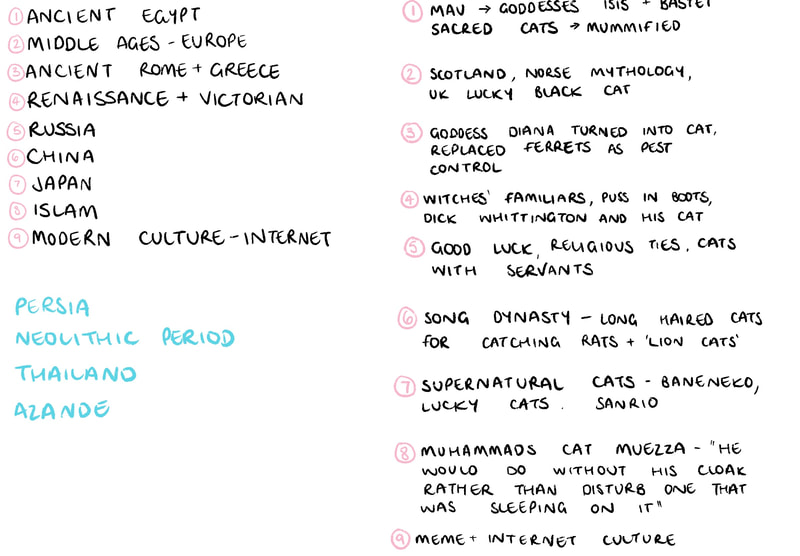 ① ANCIENT EGYPT
② MIDDLE AGES - EUROPE
③ ANCIENT ROME + GREECE
④ RENAISSANCE + VICTORIAN
⑤ RUSSIA
⑥ CHINA
⑦ JAPAN
⑧ ISLAM
⑨ MODERN CULTURE - INTERNET
PERSIA
NEOLITHIC PERIOD
THAILAND
AZANDE
① MAU → GODDESSES ISIS + BASTET
SACRED CATS → MUMMIFIED
② SCOTLAND, NORSE MYTHOLOGY,
UK LUCKY BLACK CAT
③ GODDESS DIANA TURNED INTO CAT,
REPLACED FERRETS AS PEST
CONTROL
④ WITCHES' FAMILIARS, PUSS IN BOOTS,
DICK WHITTINGTON AND HIS CAT
⑤ GOOD LUCK, RELIGIOUS TIES, CATS
WITH SERVANTS
⑥ SONG DYNASTY - LONG HAIRED CATS
FOR CATCHING RATS + 'LION CATS'
⑦ SUPERNATURAL CATS - BANENEKO,
LUCKY CATS. SANRIO
⑧ MUHAMMADS CAT MUEZZA - "HE
WOULD DO WITHOUT HIS CLOAK
RATHER THAN DISTURB ONE THAT
WAS SLEEPING ON IT"
⑨ MEME + INTERNET CULTURE